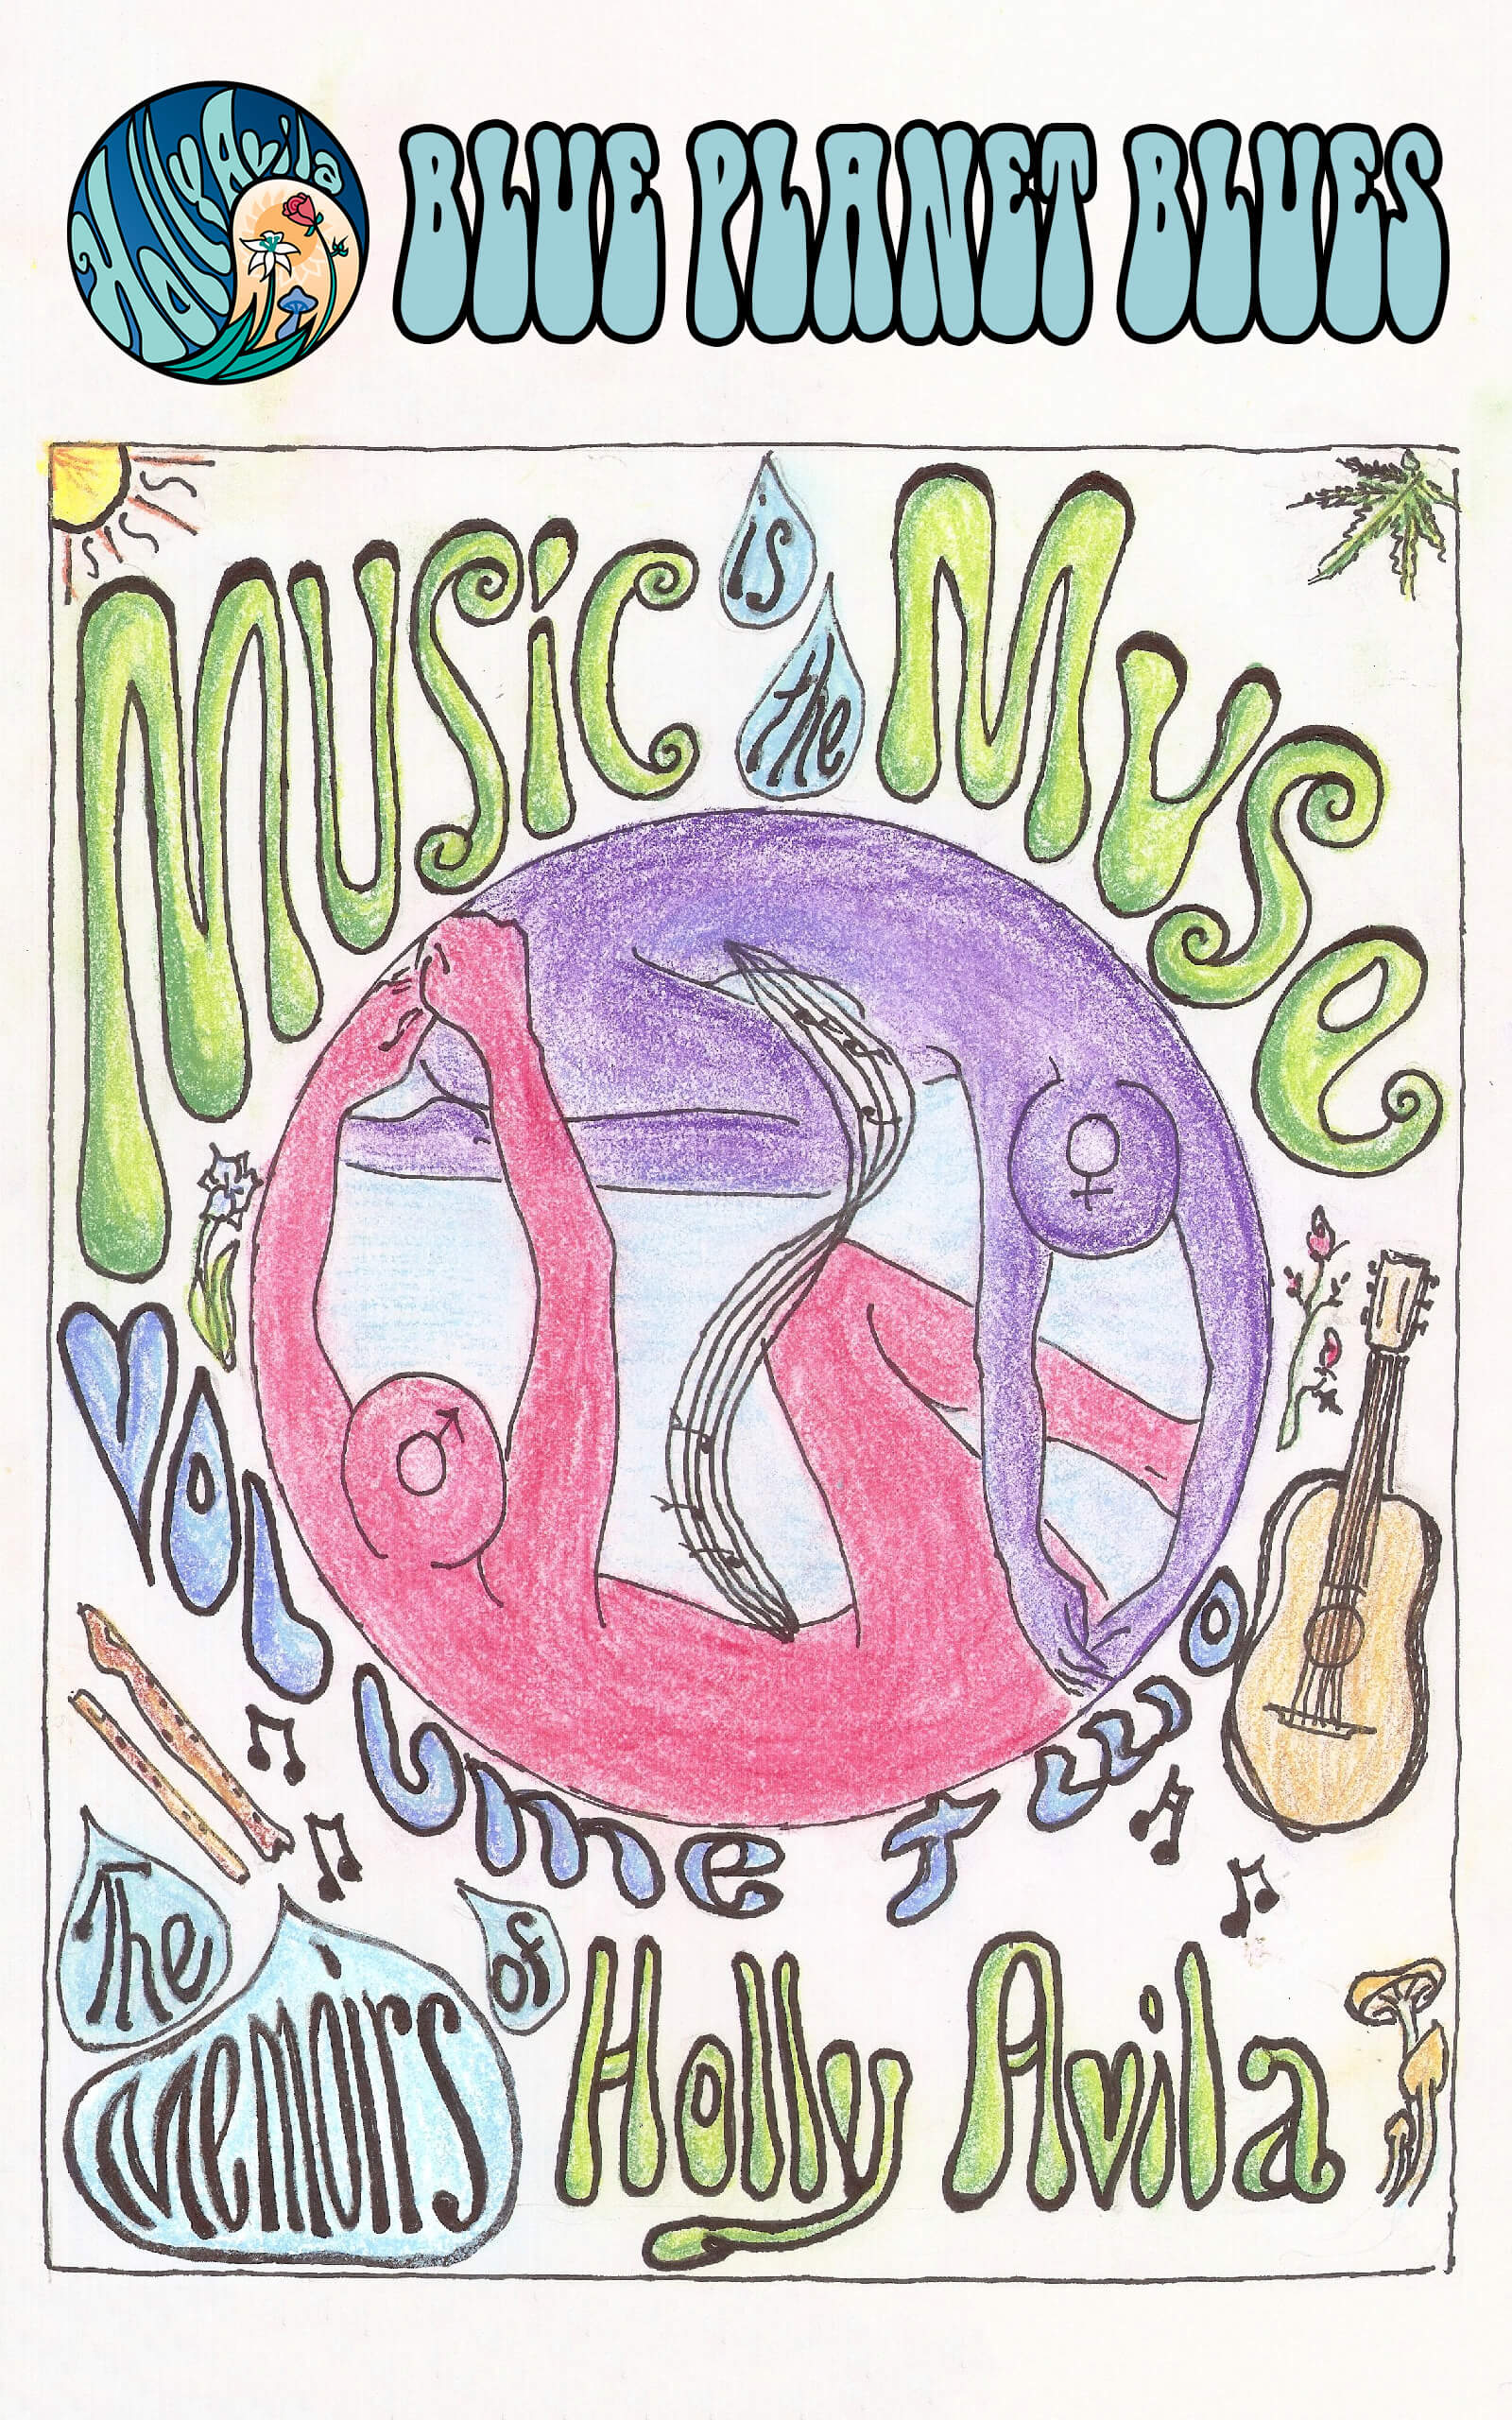 Holly Avila
BLUE PLANET BLUES
Music is the Muse
Volume Two
The Memoirs of Holly Avila